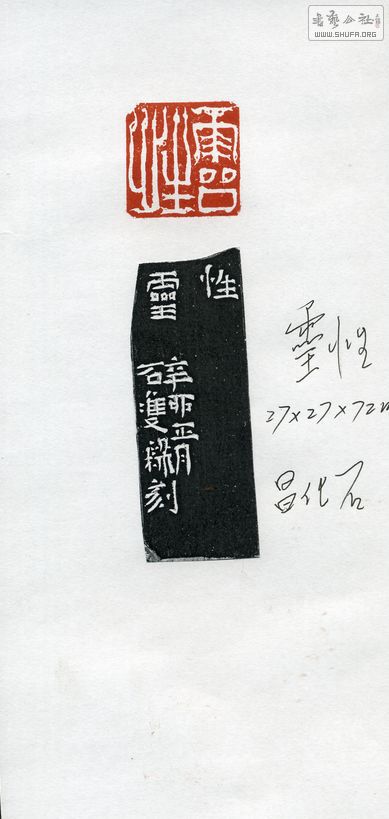 書藝公社
WWW.SHUFA.ORG
靈性
性靈
辛卯正月
石雙樑刻
靈性
27×27×72m
昌化石